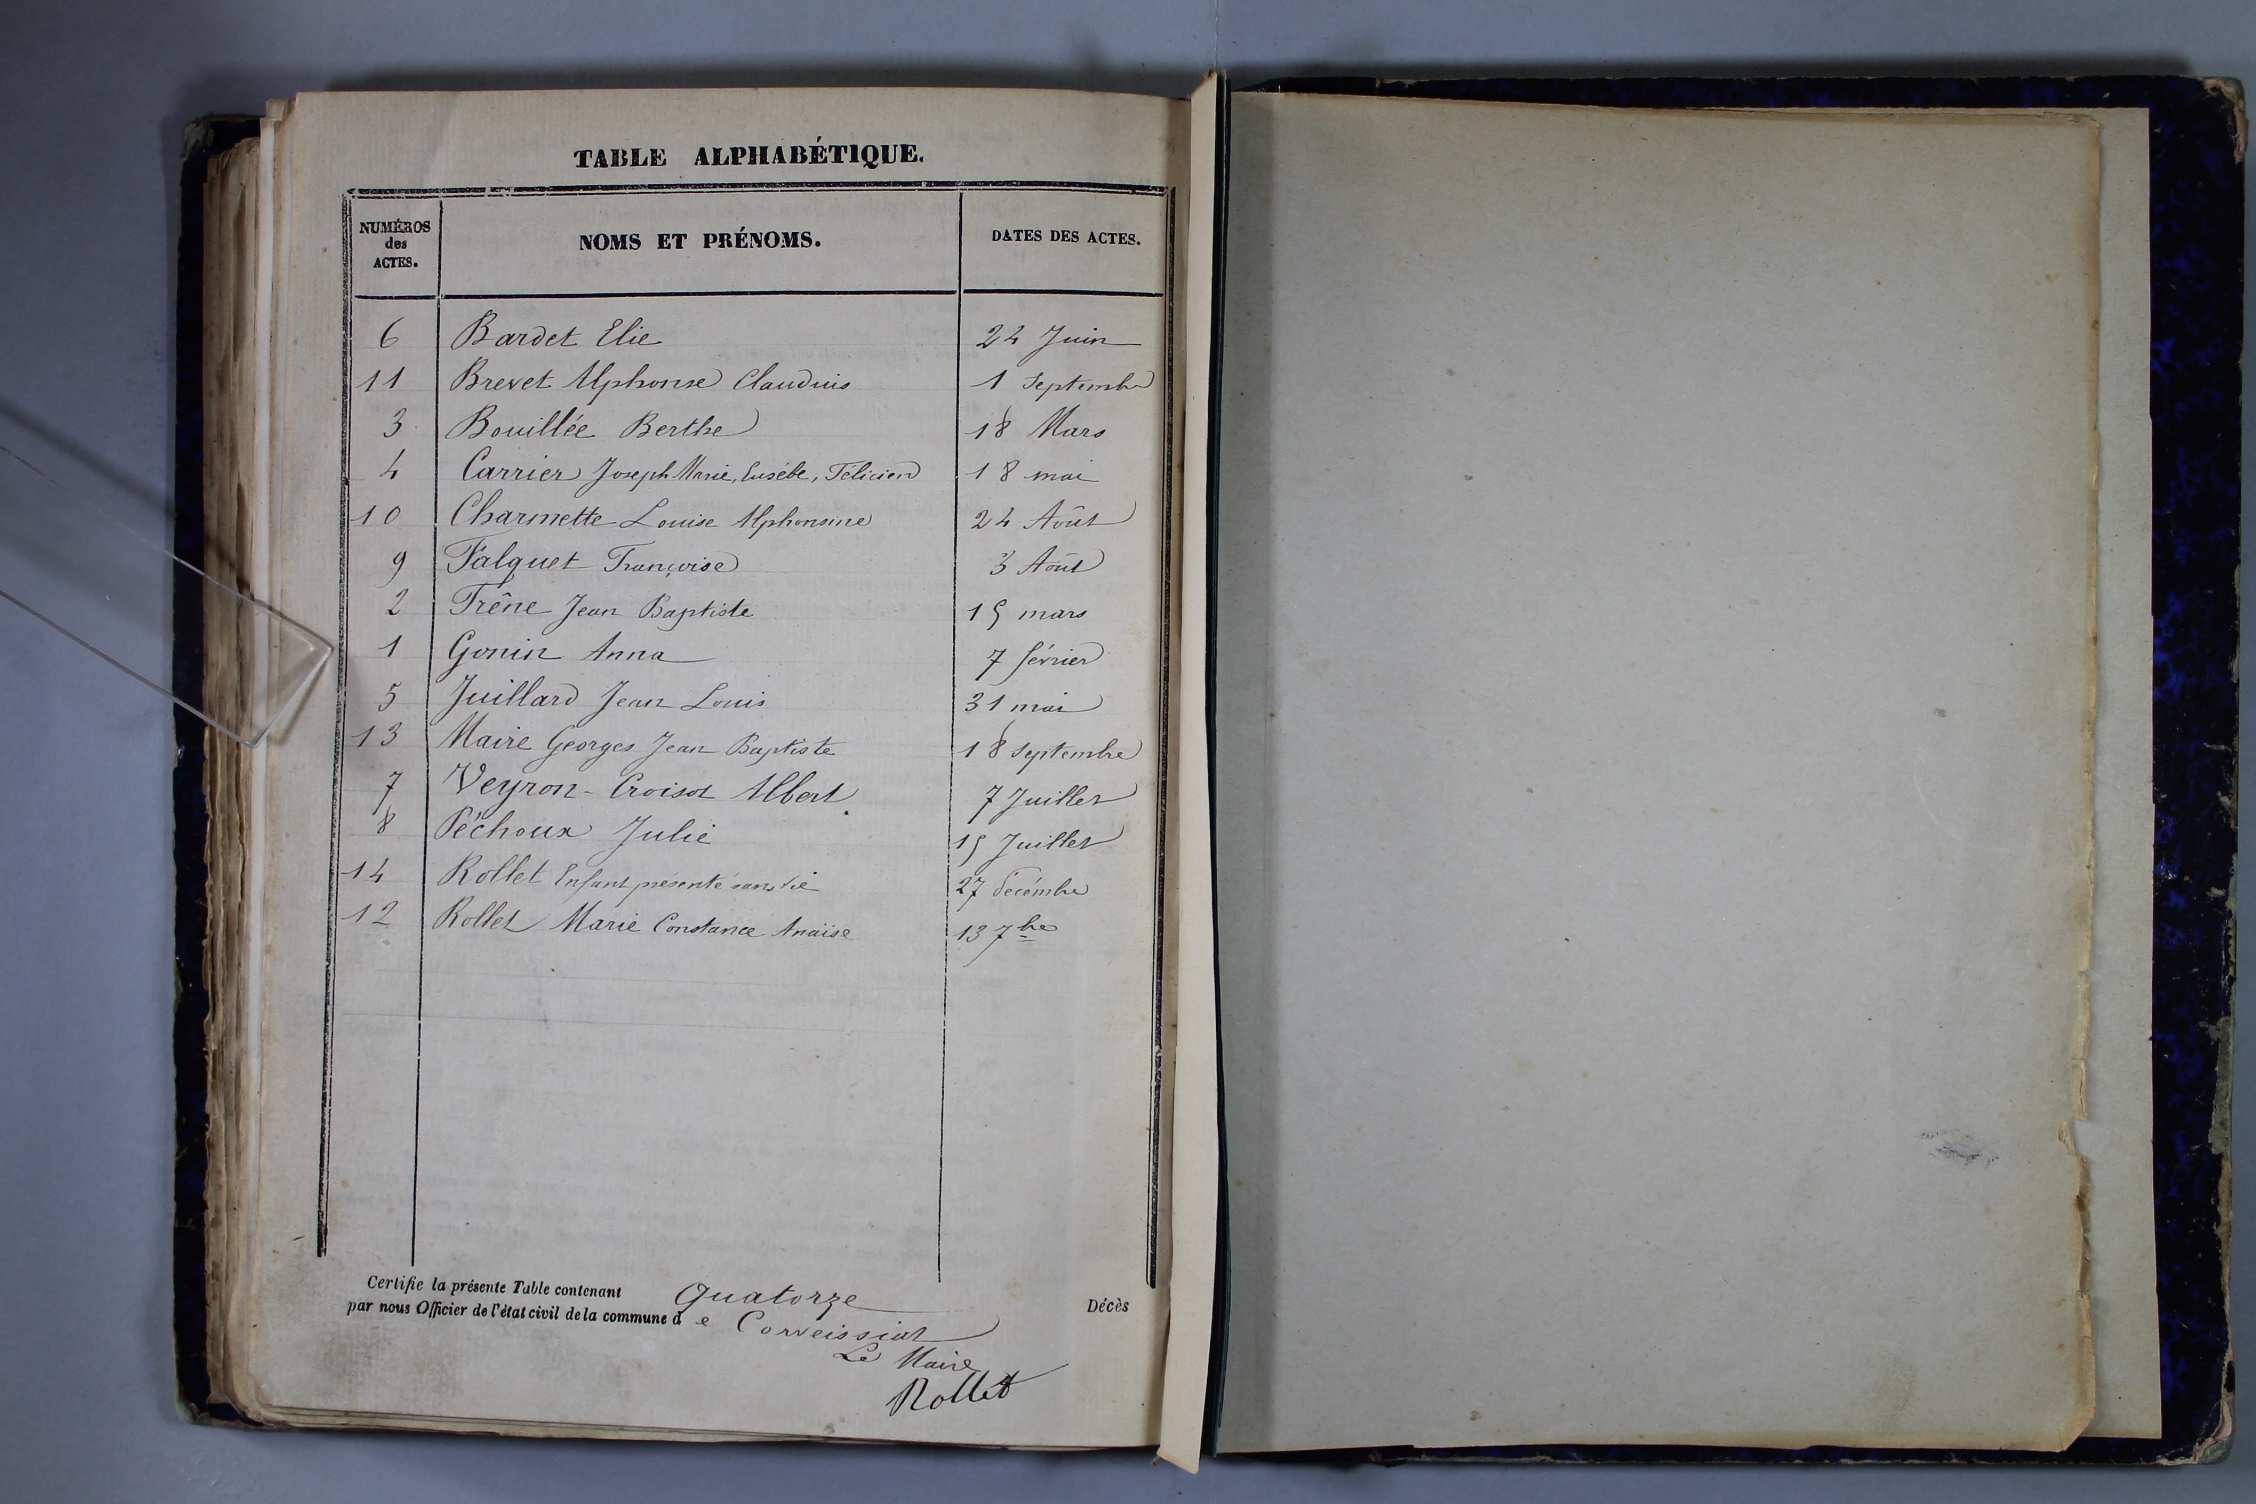 TABLE ALPHABÉTIQUE.
NUMÉROS des ACTES. NOMS ET PRÉNOMS. DATES DES ACTES.
6 Bardet Elie 24 Juin
11 Brevet Alphonse Claudius 1 Septembre
3 Bouillée Berthe 18 Mars
4 Carrier Joseph Marie, Eusébe, Félicien 18 mai
10 Charmette Louise Alphonsine 24 Août
9 Falquet Françoise 3 Août
2 Frêne Jean Baptiste 15 mars
1 Gonin Anna 7 février
5 Juillard Jean Louis 31 mai
13 Maire Georges Jean Baptiste 18 Septembre
7 Veyron-Croisot Albert 7 Juillet
8 Péchoux Julie 15 Juillet
14 Rollet Enfant présenté sans vie 27 Décémbre
12 Rollet Marie Constance Anaïse 13 7bre
Certifie la présente Table contenant Quatorze Décès
par nous Officier de l'état civil de la commune de Corveissiat
Le Maire
Rollet